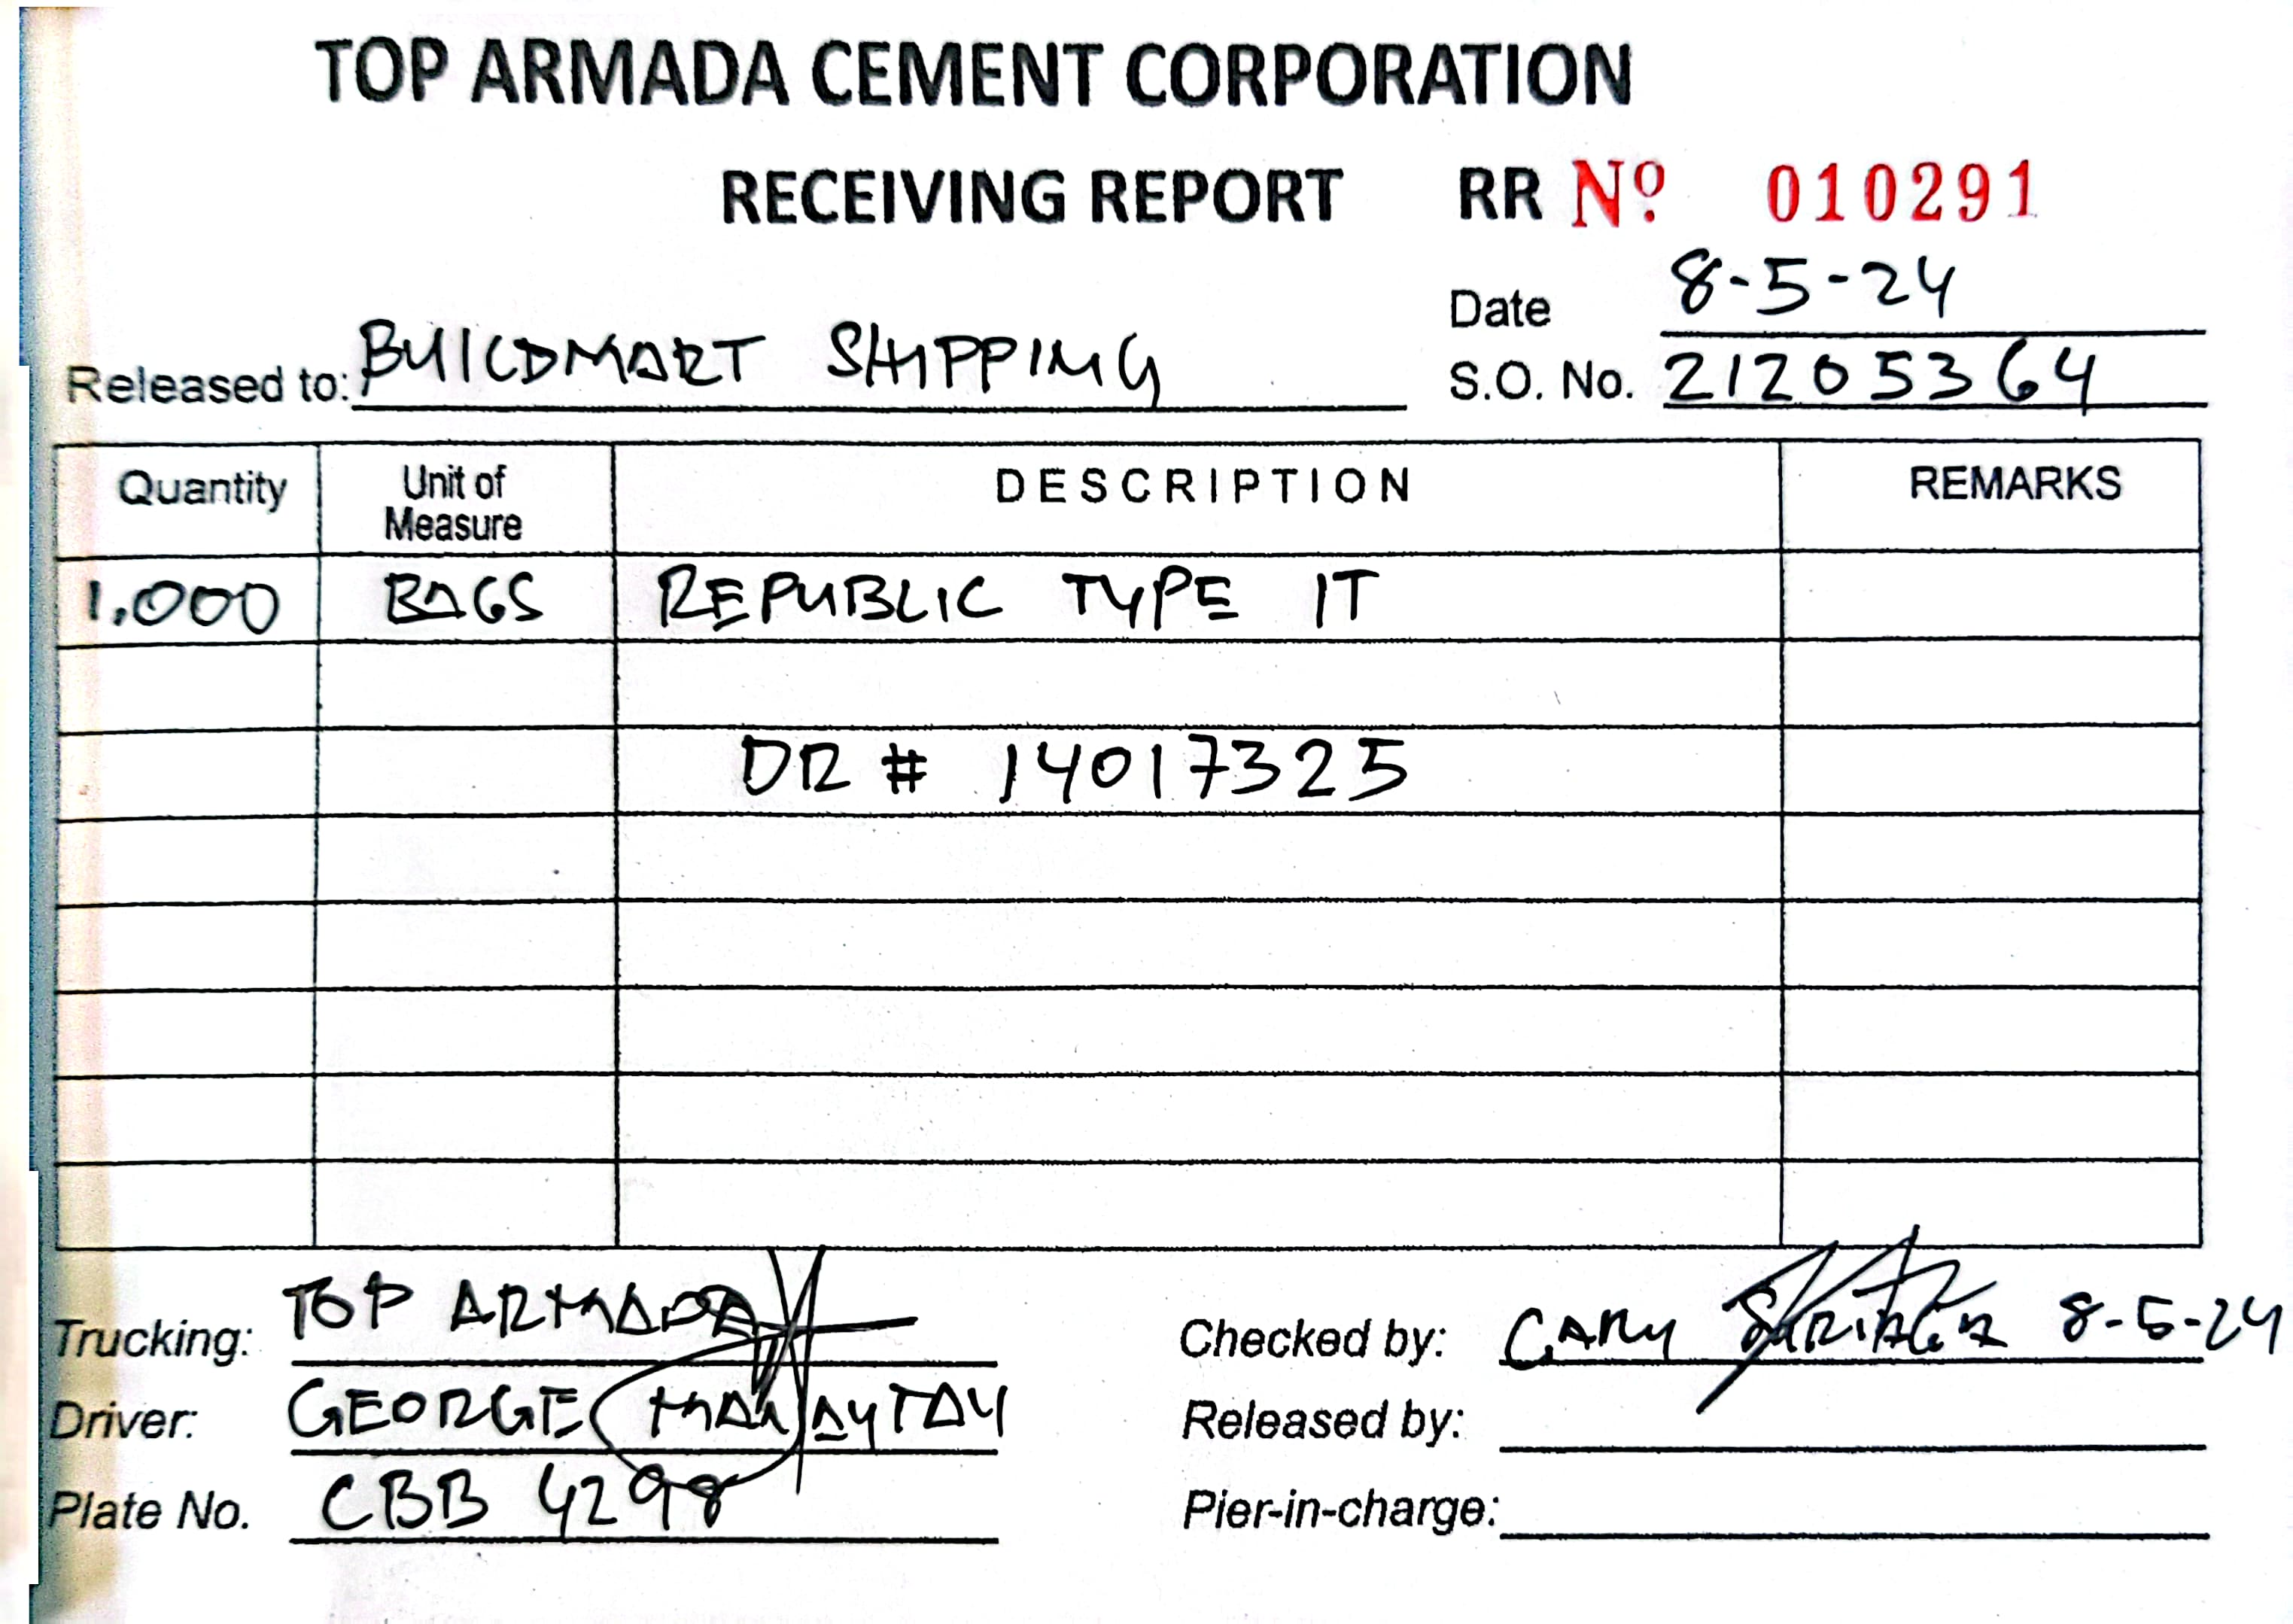 TOP ARMADA CEMENT CORPORATION
RECEIVING REPORT RR Nº 010291
Date 8-5-24
Released to: BUILDMART SHIPPING S.O. No. 21205364
Quantity Unit of Measure DESCRIPTION REMARKS
1,000 BAGS REPUBLIC TYPE IT
DR # 14017325
Trucking: TOP ARMADA Checked by: GARY 8-5-24
Driver: GEORGE Released by:
Plate No. CBB 4298 Pier-in-charge: